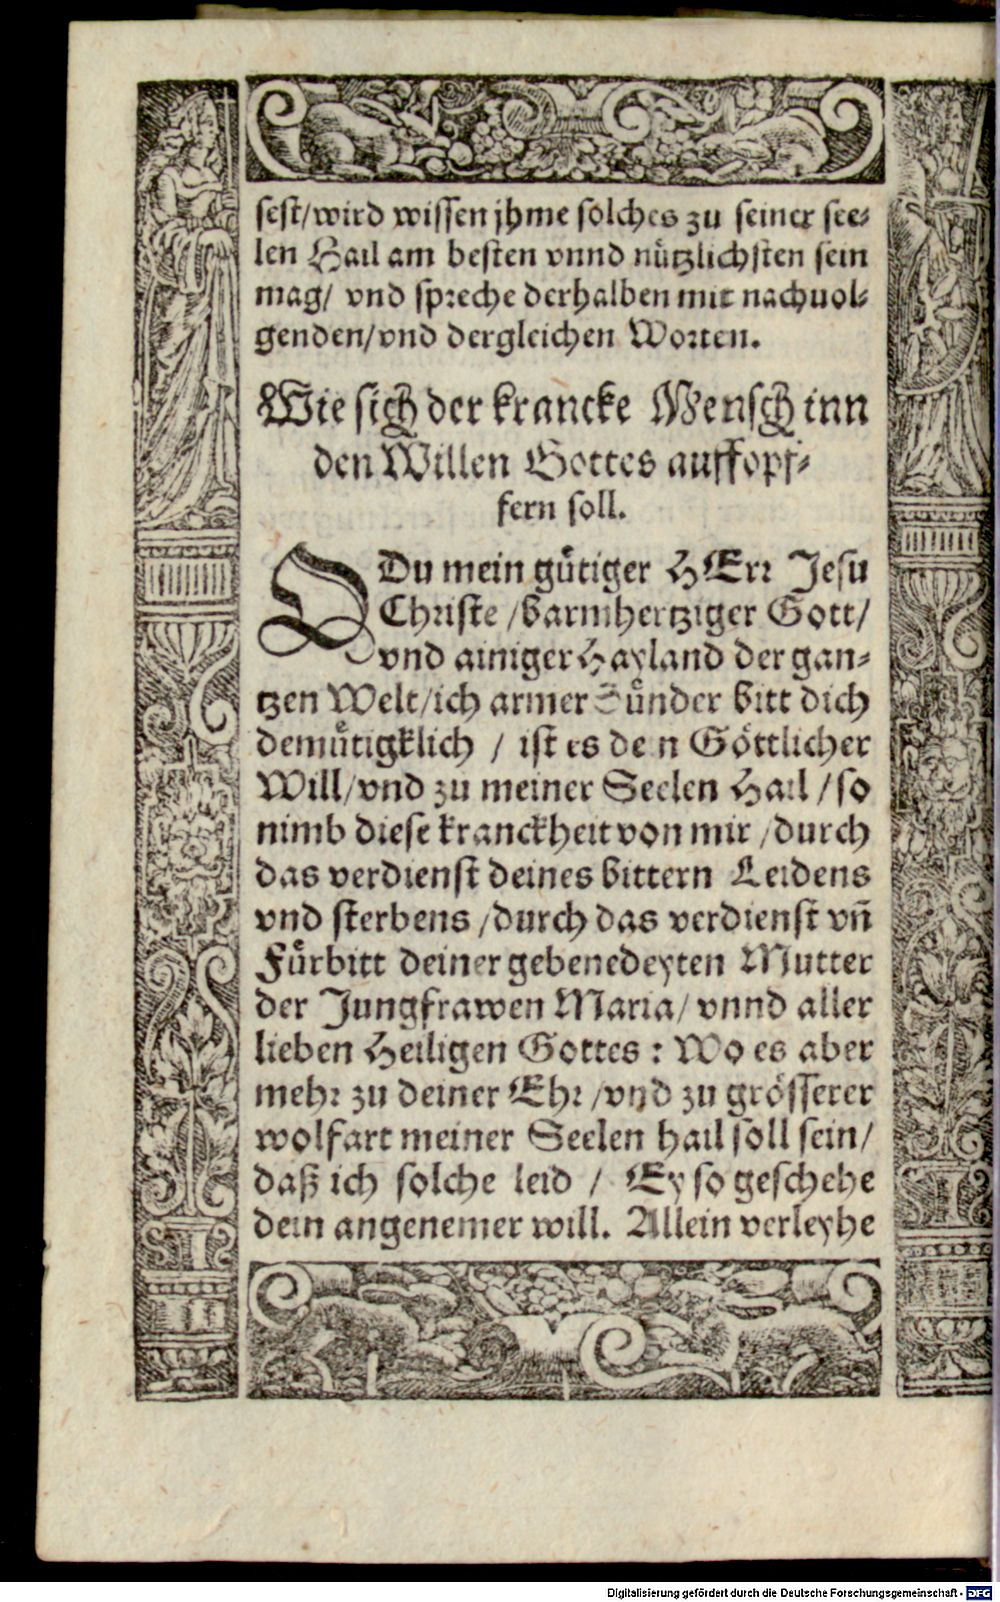 sest/wird wissen jhme solches zu seiner see-
len Hail am besten vnnd nützlichsten sein
mag/ vnd spreche derhalben mit nachuol-
genden/vnd dergleichen Worten.
Wie sich der krancke Mensch inn
den Willen Gottes auffopf-
fern soll.
O Du mein gütiger HErr Jesu
Christe /barmhertziger Gott/
vnd ainiger Hayland der gan-
tzen Welt/ich armer Sünder bitt dich
demütigklich / ist es dein Göttlicher
Will/vnd zu meiner Seelen Hail /so
nimb diese kranckheit von mir /durch
das verdienst deines bittern Leidens
vnd sterbens /durch das verdienst vñ
Fürbitt deiner gebenedeyten Mutter
der Jungfrawen Maria/ vnnd aller
lieben Heiligen Gottes : Wo es aber
mehr zu deiner Ehr /vnd zu grösserer
wolfart meiner Seelen hail soll sein/
daß ich solche leid / Ey so geschehe
dein angenemer will. Allein verleyhe
Digitalisierung gefördert durch die Deutsche Forschungsgemeinschaft - DFG